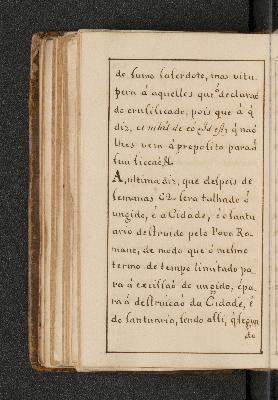 do sumo sacerdote, mas vitu
pera á aquelles que o declaraõ
do crusificado, pois que á q̃
diz, et nihil de eo est, q̃ naõ
lhes vem á propósito para
sua liccaõ.
A, ultima diz, que despois de
semanas 62. sera talhado ô
ungido, é a Cidade, é o santu
ario destruido pelo Povo Ro-
mano, de modo que ô mesmo
termo de tempo limitado pa-
ra á excisaõ do ungido, é pa-
ra á destruicaõ da Cidade, é
do santuario, sendo assi, q̃ segun
do